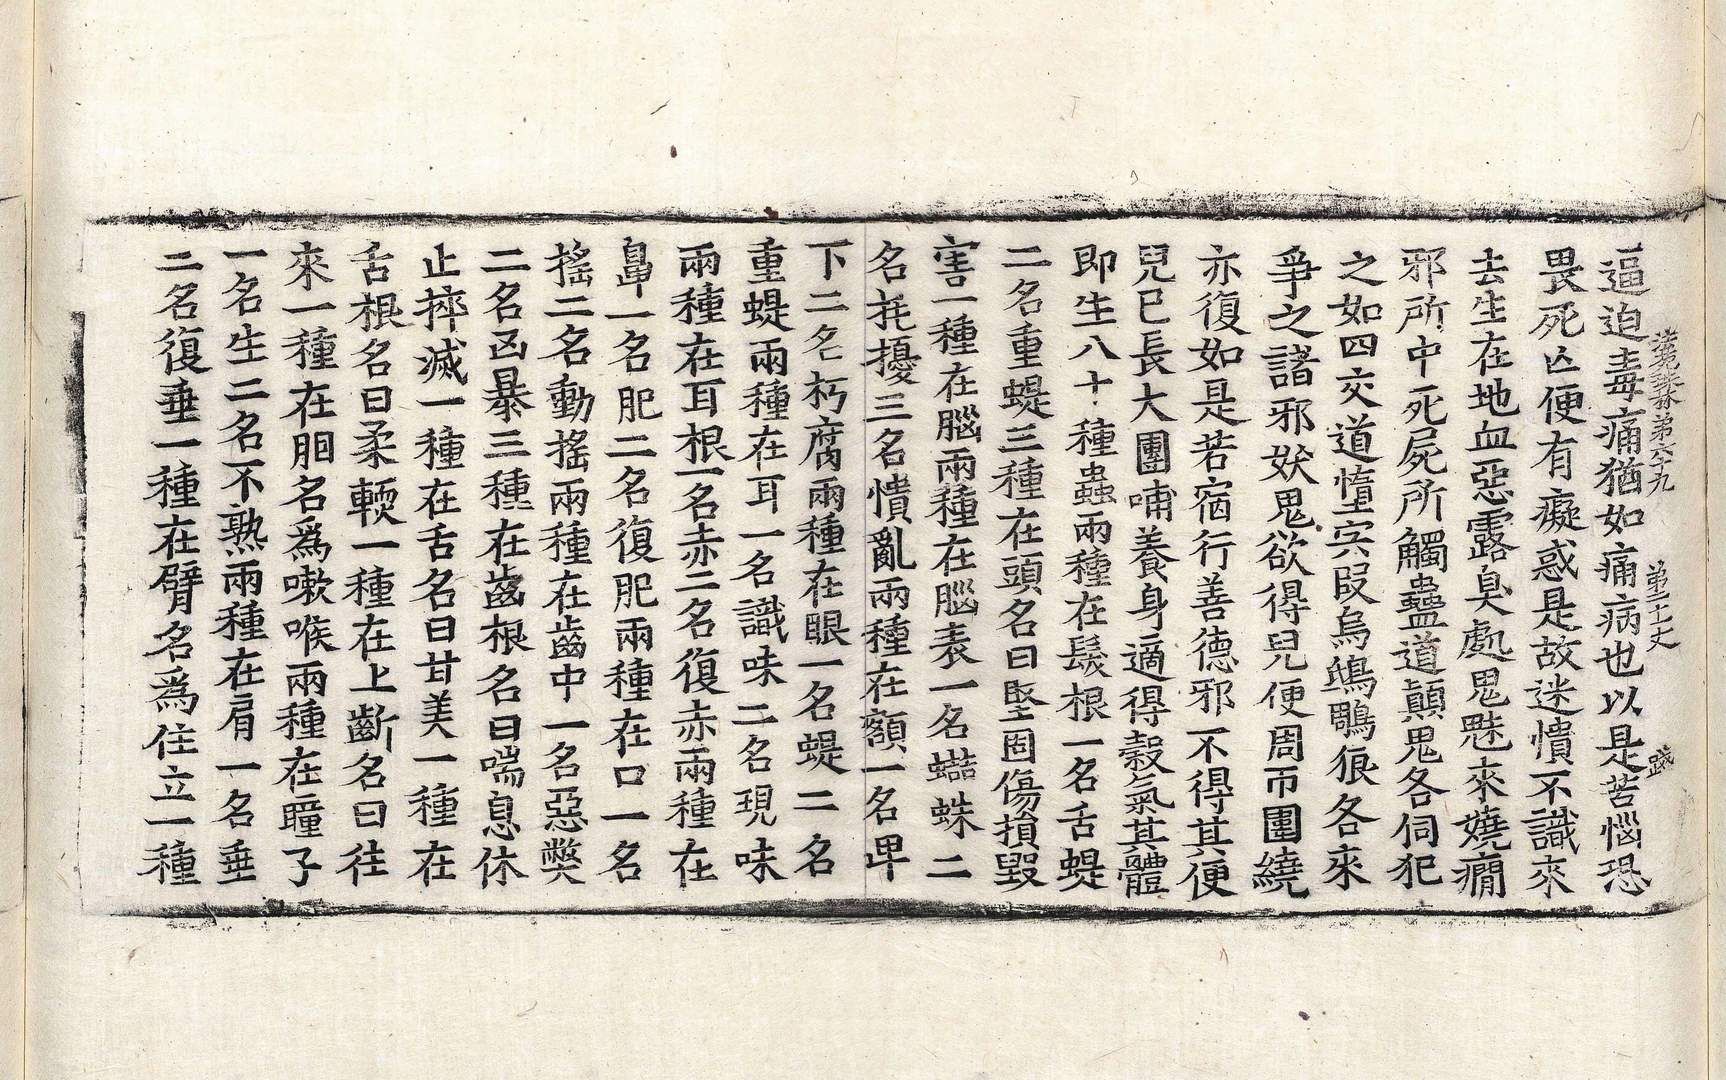 逼迫毒痛猶如痛病也以是苦惱恐
畏死亡便有癡惑是故迷憒不識來
去生在地血惡露臭處鬼魅來嬈癇
邪所中死屍所觸蠱道顛鬼各伺犯
之如四交道墮宍段烏鵄鵰狼各來
爭之諸邪妖鬼欲得兒便周帀圍繞
亦復如是若宿行善德邪不得其便
兒已長大團哺養身適得穀氣其體
即生八十種蟲兩種在髮根一名舌蝭
二名重蝭三種在頭名曰堅固傷損毀
害一種在腦兩種在腦表一名蛛二
名耗擾三名憒亂兩種在額一名早
下二名朽腐兩種在眼一名蝭二名
重蝭兩種在耳一名識味二名現味
兩種在耳根一名赤二名復赤兩種在
鼻一名肥二名復肥兩種在口一名
搖二名動搖兩種在齒中一名惡弊
二名凶暴三種在齒根名曰喘息休
止捽滅一種在舌名曰甘美一種在
舌根名曰柔輭一種在上齗名曰往
來一種在咽名爲嗽喉兩種在瞳子
一名生二名不熟兩種在肩一名垂
二名復垂一種在臂名爲住立一種
法苑珠林第六十九 第二十丈